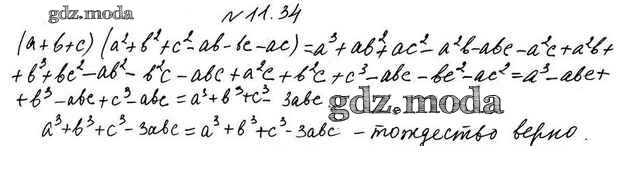 gdz.moda
№ 11.34
(a+b+c)(a²+b²+c²-ab-bc-ac)=a³+ab²+ac²-a²b-abc-a²c+a²b+
+b³+bc²-ab²-b²c-abc+a²c+b²c+c³-abc-bc²-ac²=a³-abc+
+b³-abc+c³-abc=a³+b³+c³-3abc
gdz.moda
a³+b³+c³-3abc=a³+b³+c³-3abc - тождество верно.